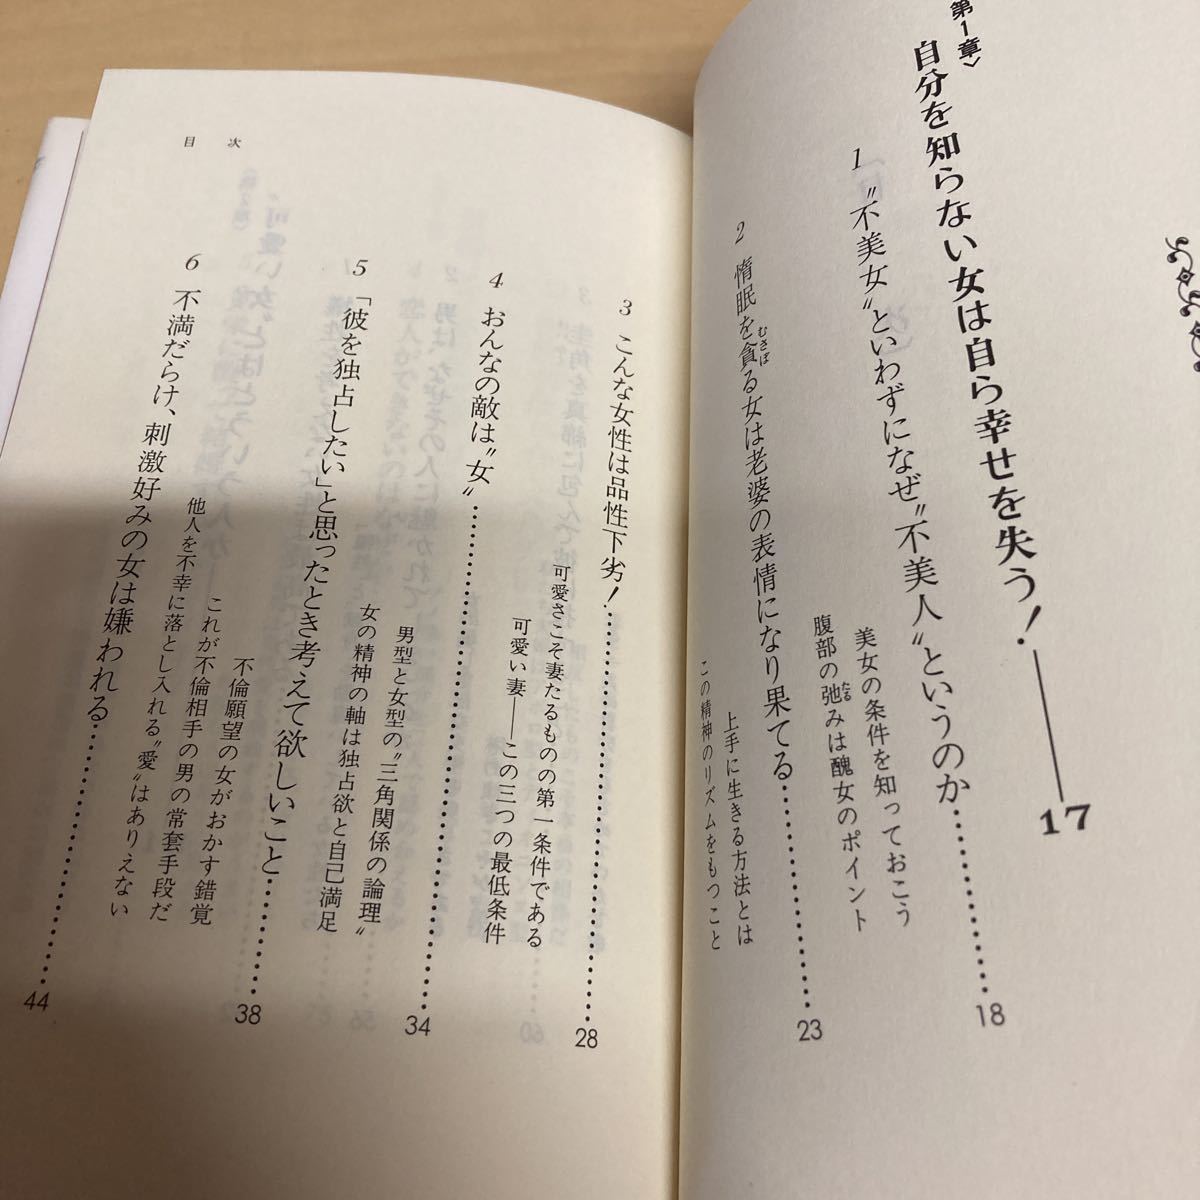 第1章〉
自分を知らない女は自ら幸せを失う!――17
1 〝不美女〟といわずになぜ〝不美人〟というのか……18
美女の条件を知っておこう
腹部の弛みは醜女のポイント
たる
2 惰眠を貪る女は老婆の表情になり果てる……23
むさぼ
上手に生きる方法とは
この精神のリズムをもつこと
目次
3 こんな女性は品性下劣!……28
可愛さこそ妻たるものの第一条件である
可愛い妻――この三つの最低条件
4 おんなの敵は〝女〟……34
男型と女型の〝三角関係の論理〟
女の精神の軸は独占欲と自己満足
5 「彼を独占したい」と思ったとき考えて欲しいこと……38
不倫願望の女がおかす錯覚
――これが不倫相手の男の常套手段だ
他人を不幸に落とし入れる〝愛〟はありえない
6 不満だらけ、刺激好みの女は嫌われる……44